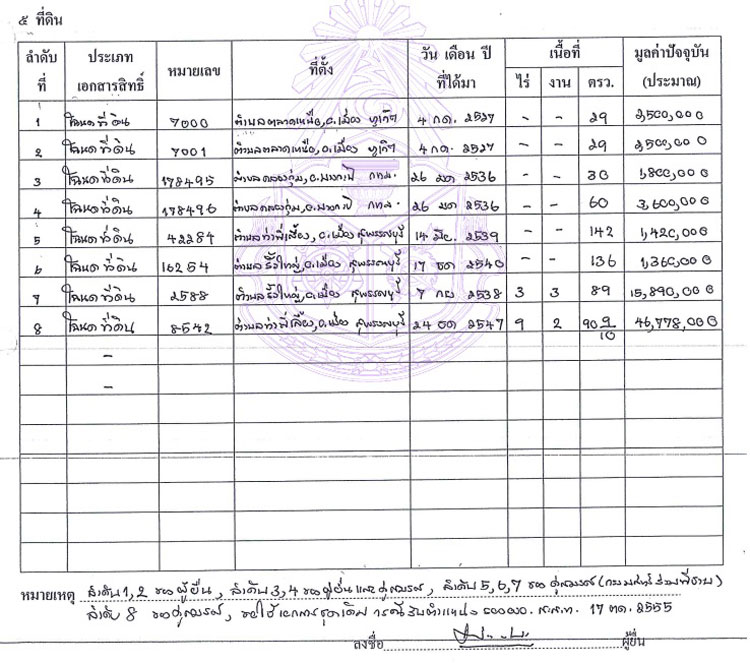 ๕ ที่ดิน
ลำดับที่ ประเภทเอกสารสิทธิ์ หมายเลข ที่ตั้ง วัน เดือน ปี ที่ได้มา เนื้อที่ ไร่ งาน ตรว. มูลค่าปัจจุบัน (ประมาณ)
1 โฉนดที่ดิน 7000 ตำบลตลาดเหนือ, อ.เมือง ภูเก็ต 4 กค. 2527 - - 29 2,500,000
2 โฉนดที่ดิน 7001 ตำบลตลาดเหนือ, อ.เมือง ภูเก็ต 4 กค. 2527 - - 29 2,500,000
3 โฉนดที่ดิน 178495 ตำบลคลองกุ่ม, อ.บางกะปิ กทม. 26 มค 2536 - - 30 1,800,000
4 โฉนดที่ดิน 178496 ตำบลคลองกุ่ม, อ.บางกะปิ กทม. 26 มค 2536 - - 60 3,600,000
5 โฉนดที่ดิน 42287 ตำบลท่าพี่เลี้ยง, อ.เมือง สุพรรณบุรี 14 มีย. 2539 - - 142 1,420,000
6 โฉนดที่ดิน 16254 ตำบลรั้วใหญ่, อ.เมือง สุพรรณบุรี 17 ธค 2540 - - 136 1,360,000
7 โฉนดที่ดิน 2588 ตำบลรั้วใหญ่, อ.เมือง สุพรรณบุรี 7 กย 2538 3 3 89 15,890,000
8 โฉนดที่ดิน 8542 ตำบลท่าพี่เลี้ยง, อ.เมือง สุพรรณบุรี 24 ธค 2547 9 2 90 9/10 46,778,000
-
-
หมายเหตุ ลำดับ 1,2 ของผู้ยื่น, ลำดับ 3,4 ของผู้ยื่นและคู่สมรส, ลำดับ 5,6,7 ของคู่สมรส (กรรมสิทธิ์ร่วมพี่ชาย)
ลำดับ 8 ของคู่สมรส, ขอใช้เอกสารชุดเดิม กรณีรับตำแหน่ง 17 ตค. 2555
ลงชื่อ ผู้ยื่น